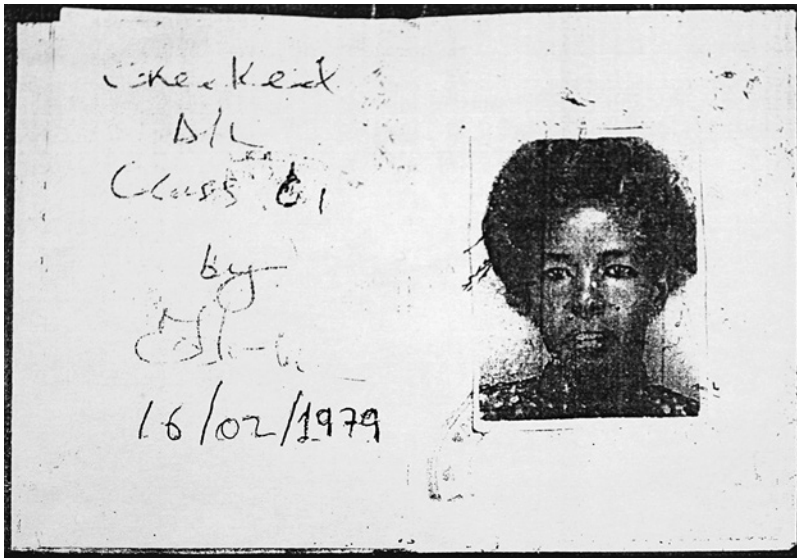 Checked
D/L
Class G1
by
16/02/1979